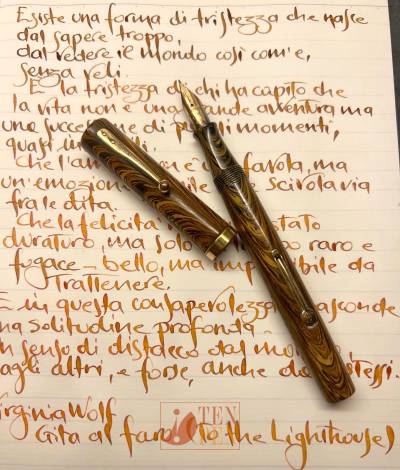 Esiste una forma di tristezza che nasce
dal sapere troppo,
dal vedere il mondo così com'è,
senza veli.
È la tristezza di chi ha capito che
la vita non è una grande avventura ma
una successione di piccoli momenti,
quasi
Che l'a è favola, ma
un'emozione scivola via
fra le dita.
Che la felicità stato
duraturo, ma solo raro e
fugace – bello, ma impossibile da
Trattenere.
E in questa consapevolezza nasconde
una solitudine profonda
un senso di distacco dal mo
dagli altri, e forse, anche da stessi.
Virginia Wolf
Gita al faro (To the Lighthouse)
TEN
PEN